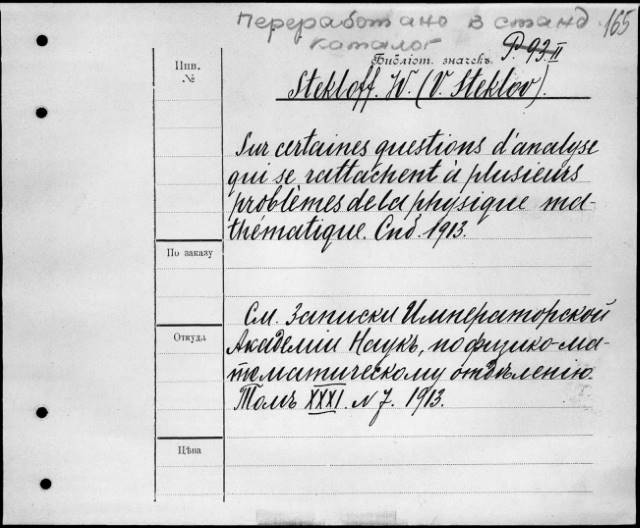 Переработано в станд. 165
каталог
Библіот. значекъ P. 93 II
Инв.
№
Stekloff. W. (V. Steklov).
Sur certaines questions d'analyse
qui se rattachent à plusieurs
problèmes de la physique ma-
thématique. Спб. 1913.
По заказу
См. Записки Императорской
Откуда
Академіи Наукъ, по физико-ма-
тематическому отдѣленію.
Томъ XXXI. N 7. 1913.
Цѣна